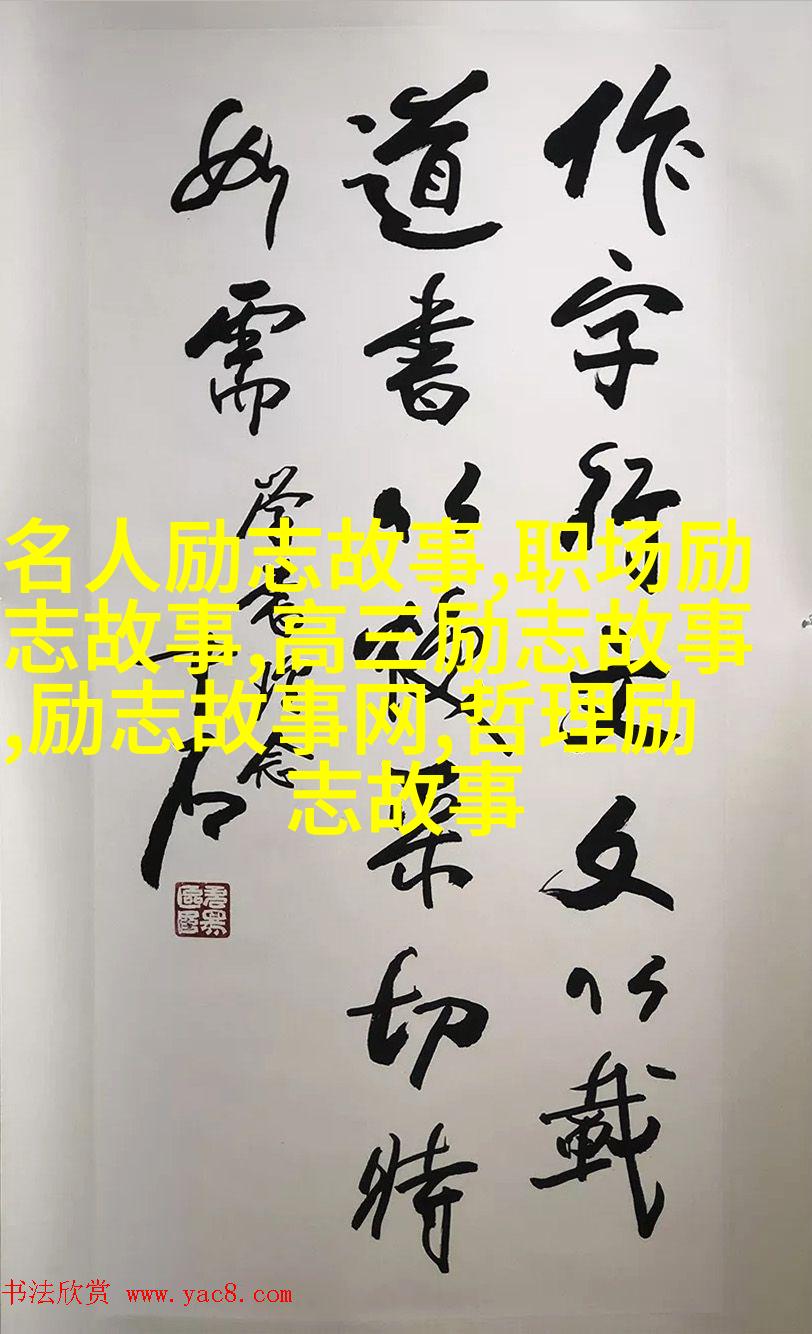 作字行文文以載
道書以煥采切時
如需
名人励志故事,职场励
志故事,高三励志故事
,励志故事网,哲理励
志故事
书法欣赏 www.yac8.com